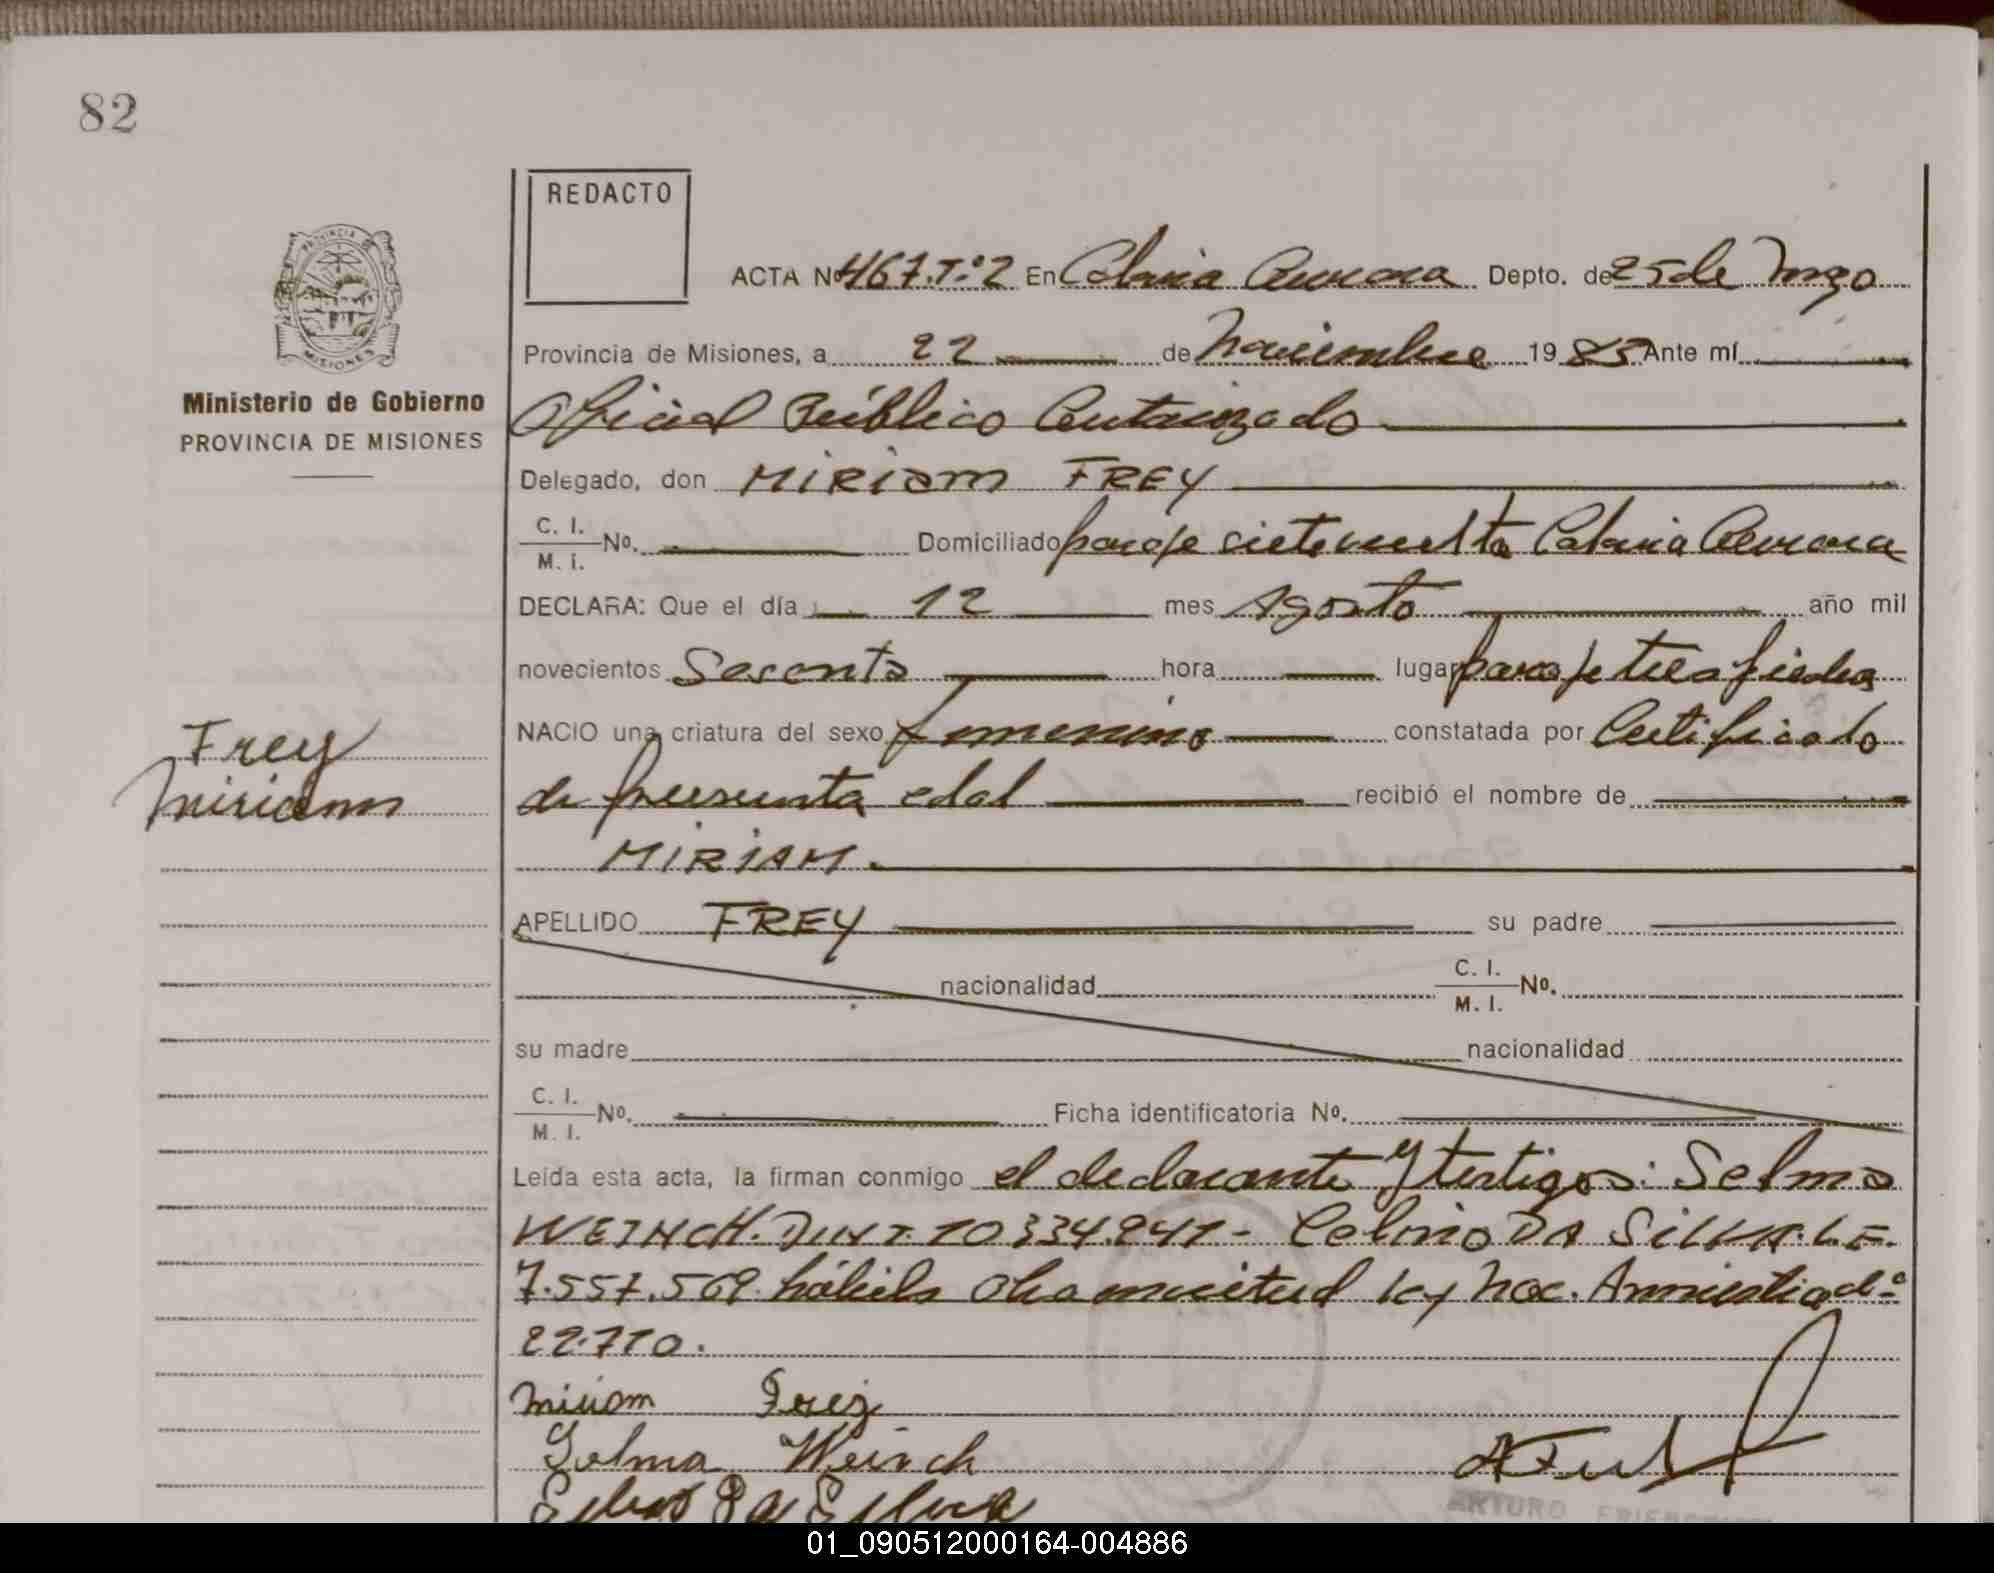 82
REDACTO
PROVINCIA DE
MISIONES
Ministerio de Gobierno
PROVINCIA DE MISIONES
ACTA Nº 467.Tº2 En Colonia Aurora Depto. de 25 de Mayo
Provincia de Misiones, a 22 de Noviembre 1985 Ante mí
Oficial Público Autorizado
Delegado, don MIRIAM FREY
C. I.
M. I. Nº. Domiciliado paraje sietevuelta Colonia Aurora
DECLARA: Que el día 12 mes Agosto año mil
novecientos Sesenta hora lugar paraje tres piedras
NACIO una criatura del sexo femenino constatada por Certificado
Frey
Miriam
de presunta edad recibió el nombre de
MIRIAM.
APELLIDO FREY su padre
nacionalidad C. I.
M. I. Nº.
su madre nacionalidad
C. I.
M. I. Nº. Ficha identificatoria Nº.
Leída esta acta, la firman conmigo el declarante y testigos: Selma
WEINCH. 10334.841- Celmo DA SILVA. L.E.
7.557.569 hábiles ley Nac. Amnistia
22.710.
Miriam Frey
Selma Weinch
Da Silva
ARTURO
01_090512000164-004886